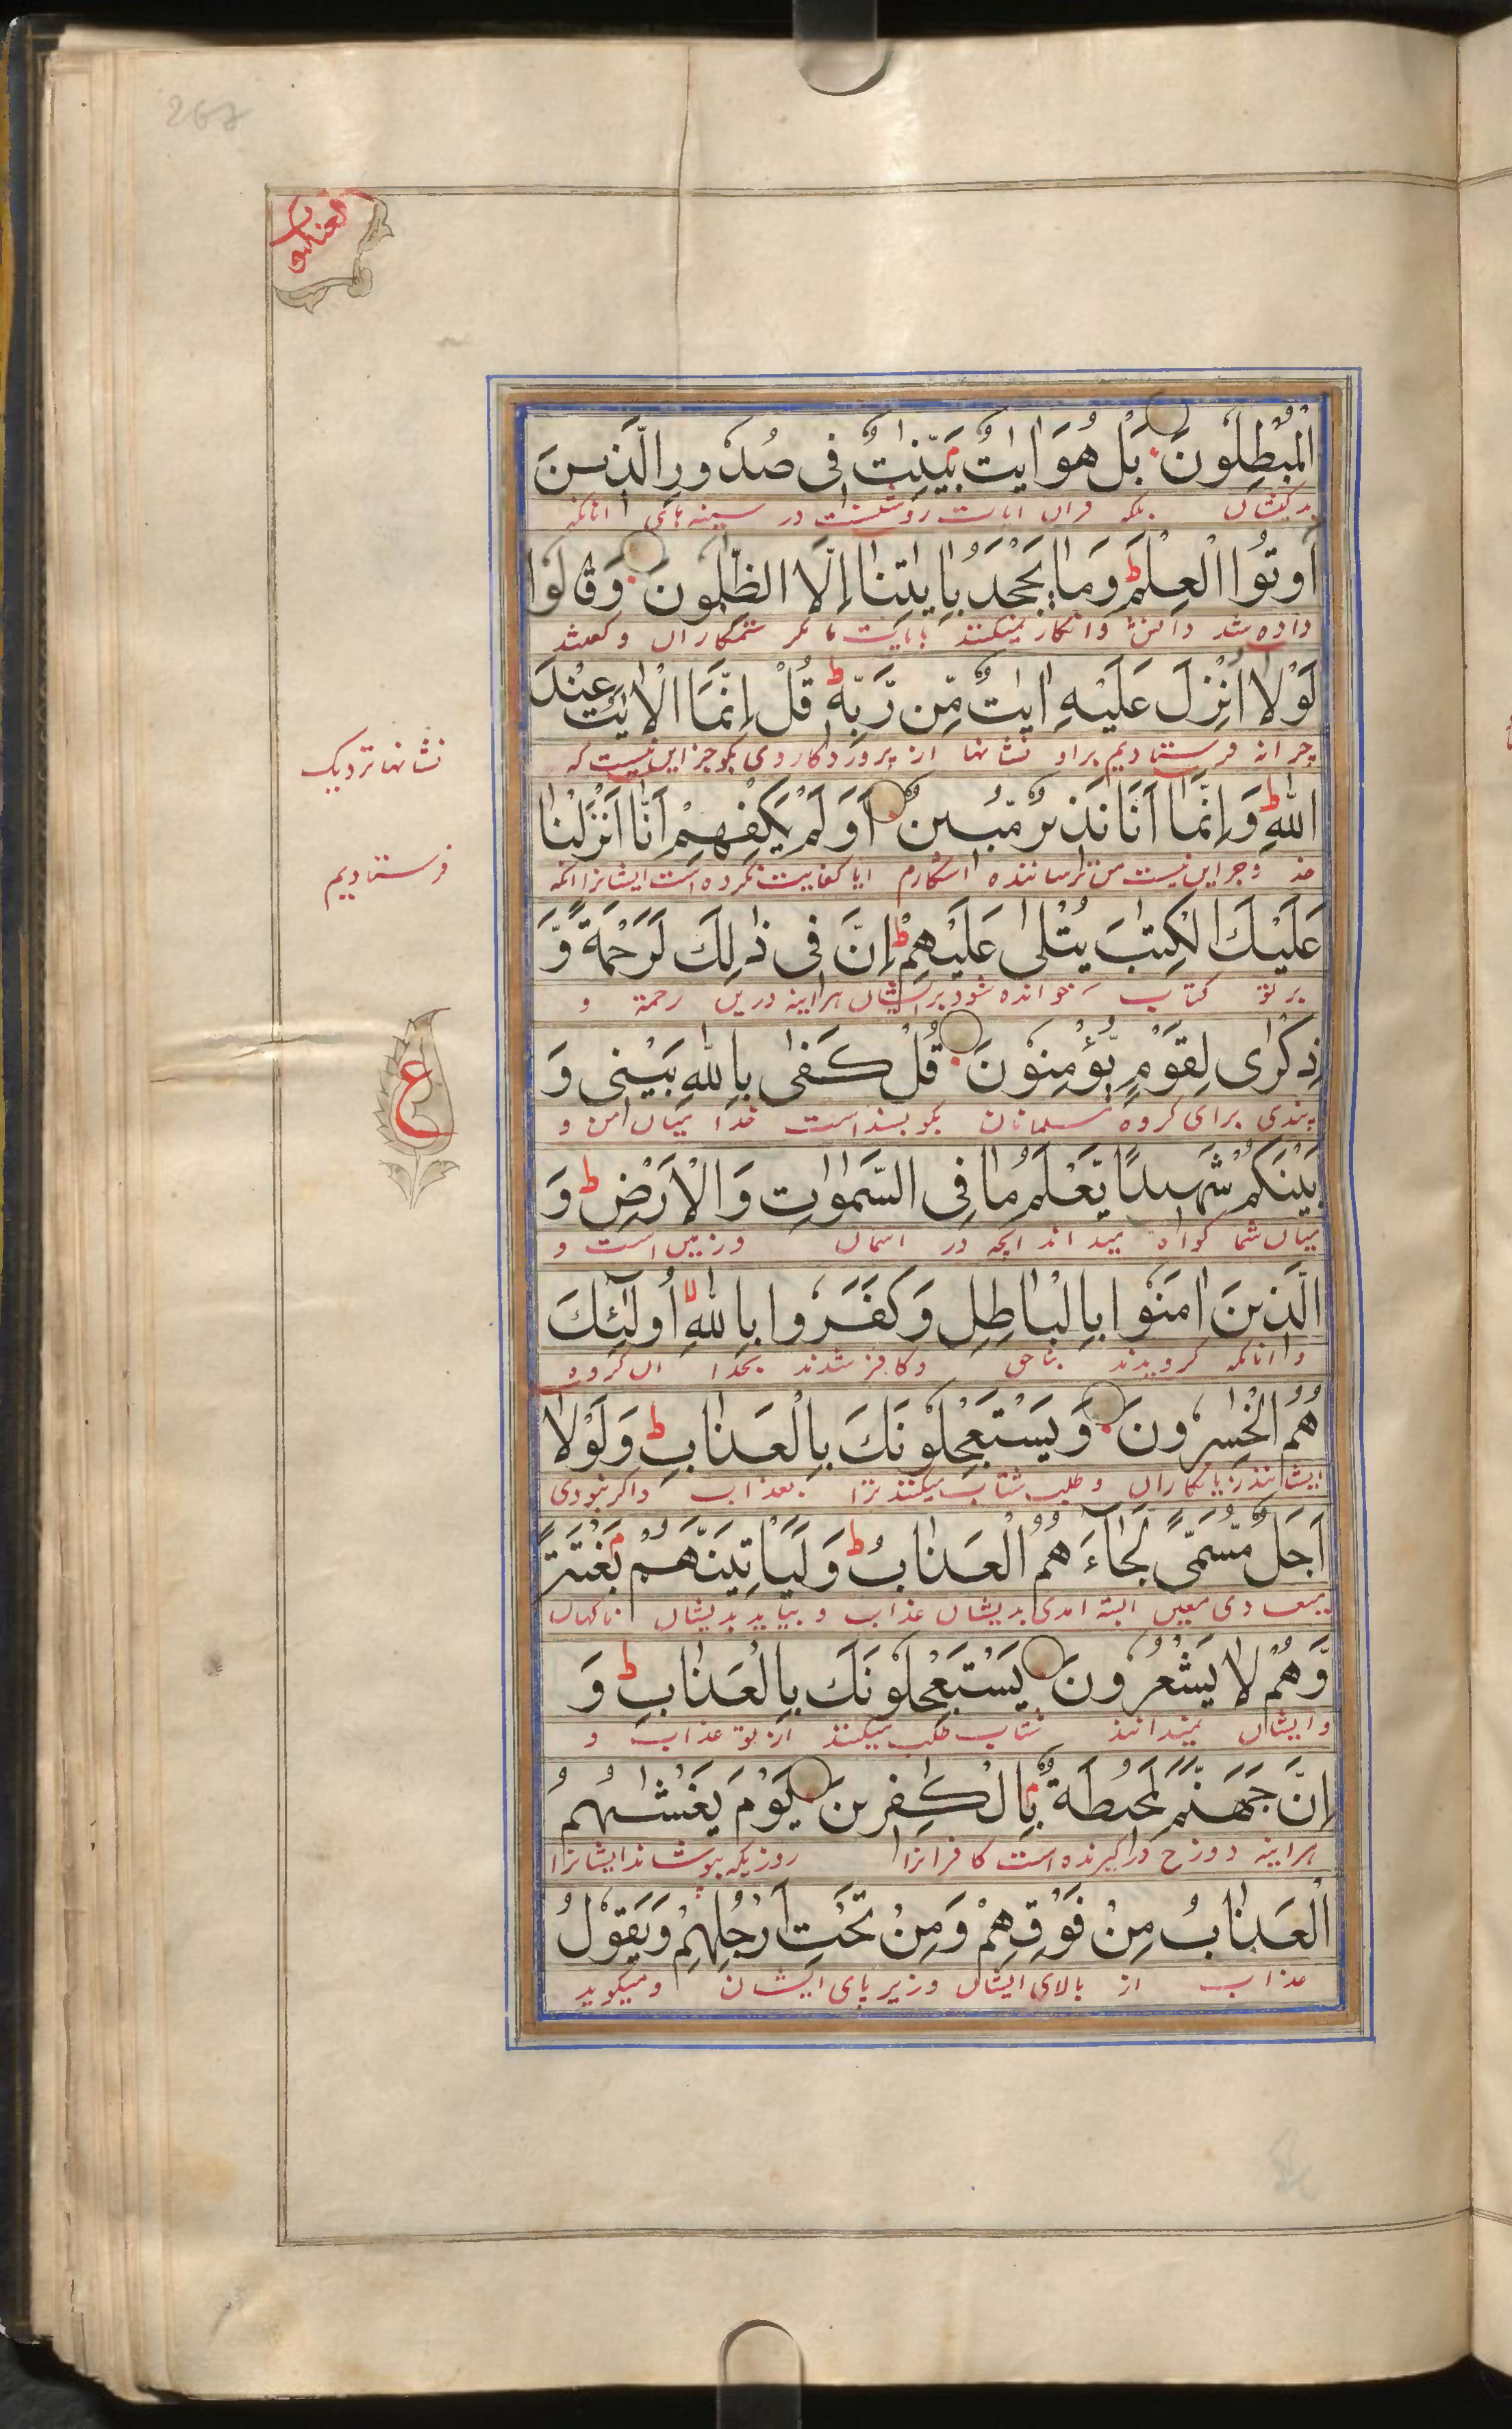 268
العنکبوت
الْمُبْطِلُونَ بَلْ هُوَ اٰيٰتٌ بَيِّنٰتٌ فِى صُدُورِ الَّذِينَ
بلکه قران ایات روشنست در سینه های انانکه
اُوتُوا الْعِلْمَ ط وَمَا يَجْحَدُ بِاٰيٰتِنَا اِلَّا الظّٰلِمُونَ وَقَالُوا
داده شد دانش وانکار نمیکنند بایات ما مکر ستمکاران وکفتند
لَوْلَا اُنْزِلَ عَلَيْهِ اٰيٰتٌ مِّنْ رَّبِّهٖ ط قُلْ اِنَّمَا الْاٰيٰتُ عِنْدَ
چرا نه فرستادیم براو نشانها از پروردکار وی بکو جز این نیست که
نشانها نزدیک
اللّٰهِ ط وَاِنَّمَا اَنَا نَذِيرٌ مُّبِينٌ اَوَلَمْ يَكْفِهِمْ اَنَّا اَنْزَلْنَا
خدا وجز این نیست من ترساننده اشکارم ایا کفایت نکرده است ایشانرا انکه
فرستادیم
عَلَيْكَ الْكِتٰبَ يُتْلٰى عَلَيْهِمْ ط اِنَّ فِى ذٰلِكَ لَرَحْمَةً وَّ
بر تو کتاب خوانده شود بر ایشان هراینه درین رحمة و
ذِكْرٰى لِقَوْمٍ يُّؤْمِنُونَ قُلْ كَفٰى بِاللّٰهِ بَيْنِى وَ
پندی برای کروه مسلمانان بکو بسنداست خدا میان من و
ع
بَيْنَكُمْ شَهِيدًا يَّعْلَمُ مَا فِى السَّمٰوٰتِ وَالْاَرْضِ ط وَ
میان شما کواه میداند انچه در اسمان وزمین است و
الَّذِينَ اٰمَنُوا بِالْبَاطِلِ وَكَفَرُوا بِاللّٰهِ لا اُولٰٓئِكَ
وانانکه کرویدند بناحق وکافر شدند بخدا ان کروه
هُمُ الْخٰسِرُونَ وَيَسْتَعْجِلُونَكَ بِالْعَذَابِ ط وَلَوْلَا
ایشانند زیانکاران وطلب شتاب میکنند ترا بعذاب واکر نبودی
اَجَلٌ مُّسَمًّى لَّجَآءَهُمُ الْعَذَابُ ط وَلَيَاْتِيَنَّهُمْ بَغْتَةً
میعادی معین البته امدی بدیشان عذاب و بیاید بدیشان ناکهان
وَّهُمْ لَا يَشْعُرُونَ يَسْتَعْجِلُونَكَ بِالْعَذَابِ ط وَ
وایشان نمیدانند شتاب طلب میکنند از تو عذاب و
اِنَّ جَهَنَّمَ لَمُحِيطَةٌ بِالْكٰفِرِينَ يَوْمَ يَغْشٰىهُمُ
هراینه دوزخ دراکیرنده است کافرانرا روزیکه بپوشاند ایشانرا
الْعَذَابُ مِنْ فَوْقِهِمْ وَمِنْ تَحْتِ اَرْجُلِهِمْ وَيَقُولُ
عذاب از بالای ایشان وزیر پای ایشان ومیکوید